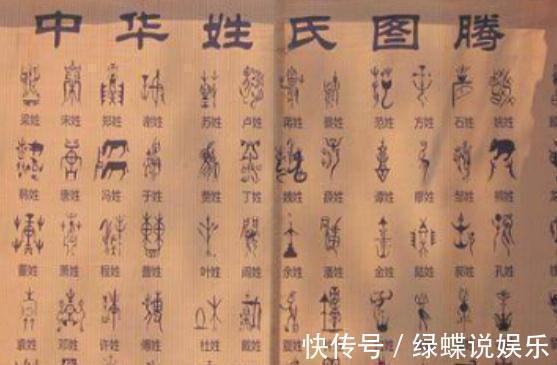 中华姓氏图腾
梁姓 宋姓 郑姓 谢姓 苏姓 卢姓 蒋姓 范姓 方姓 石姓 姚姓
韩姓 唐姓 冯姓 于姓 贾姓 丁姓 魏姓 薛姓 谭姓 廖姓 邹姓 熊姓
董姓 萧姓 程姓 曹姓 叶姓 阎姓 余姓 潘姓 金姓 陆姓 郝姓 孔姓
袁姓 邓姓 许姓 傅姓 杜姓 戴姓 夏姓
快传号 / 绿蝶说娱乐